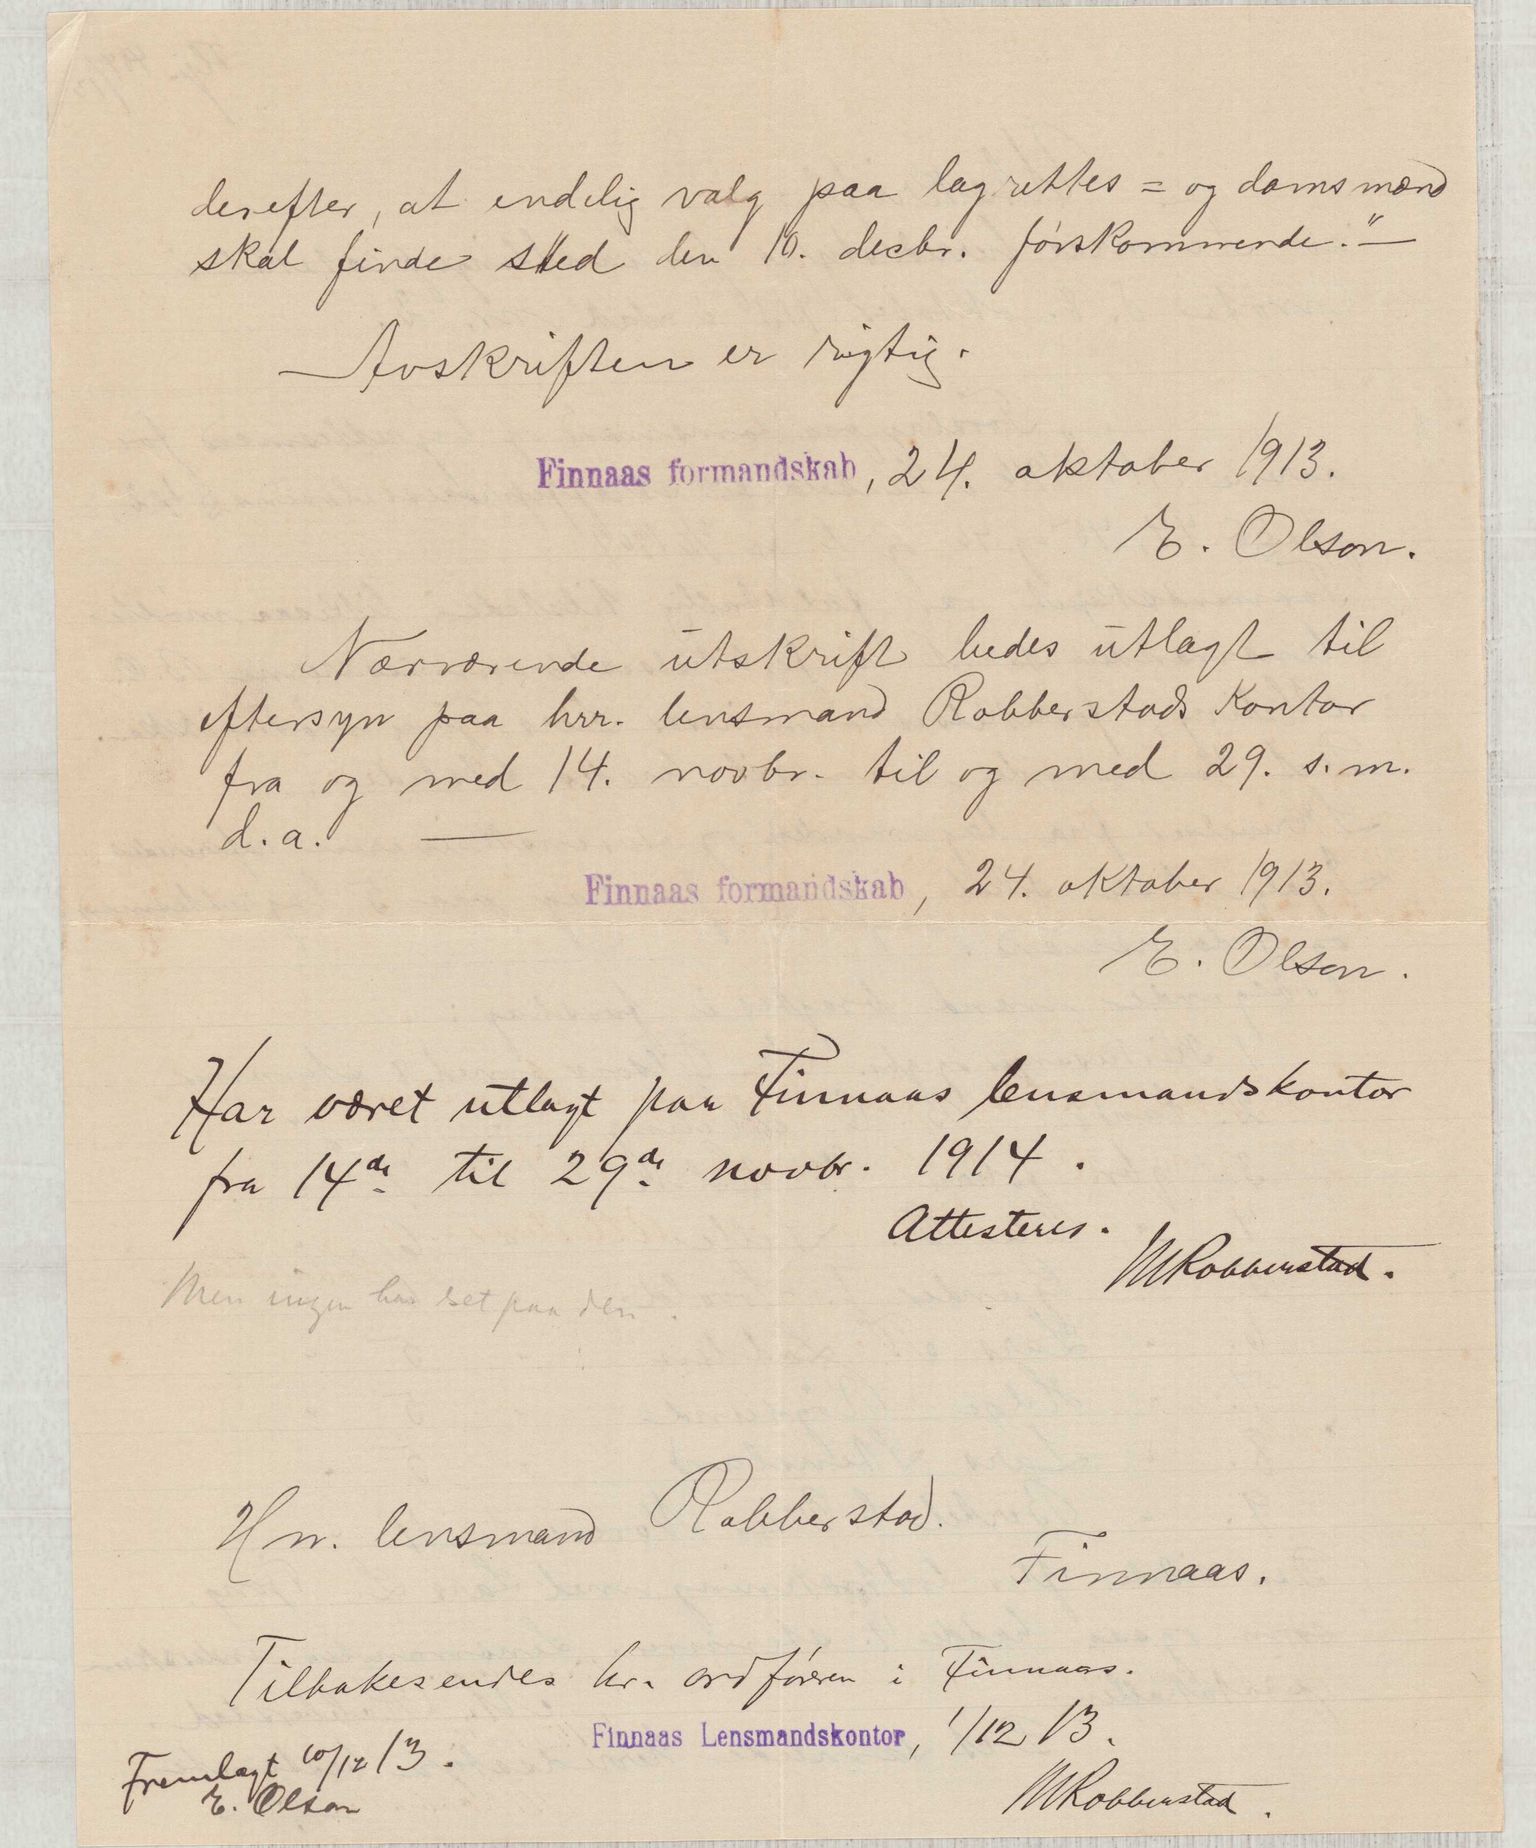 derefter, at endelig valg paa lagrettes = og domsmænd
skal finde sted den 10. decbr. førskommende."—
Avskriften er rigtig.
Finnaas formandskab, 24. oktober 1913.
E. Olson.
Nærværende utskrift bedes utlagt til
eftersyn paa hrr. lensmand Robberstads kontor
fra og med 14. novbr. til og med 29. s. m.
d. a. —
Finnaas formandskab, 24. oktober 1913.
E. Olson.
Har været utlagt paa Finnaas lensmandskontor
fra 14de til 29de novbr. 1914.
Attesteres.
MRobberstad.
Men ingen har set paa den.
Hrr. lensmand Robberstad.
Finnaas.
Tilbakesendes hr. ordføreren i Finnaas.
Finnaas Lensmandskontor, 1/12 13.
MRobberstad.
Fremlagt 10/12 13.
E. Olson